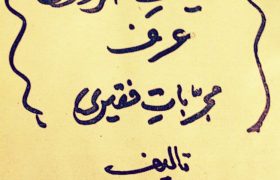 عرف
مجرّباتِ فقیری
تالیف